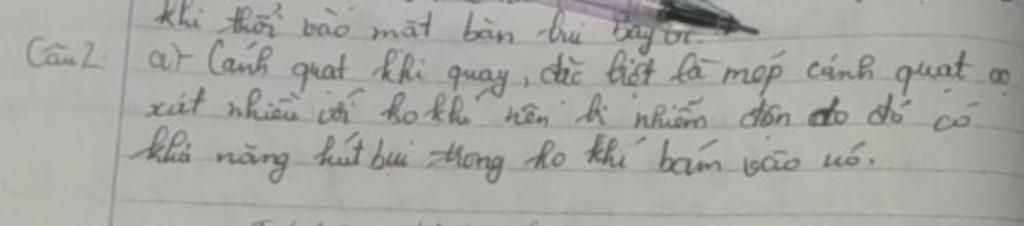 khi thổi vào mặt bàn bụi bay đi.
Câu 2: a) Cánh quạt khi quay, đặc biệt là mép cánh quạt cọ
xát nhiều với ko khí nên bị nhiễm điện do đó có
khả năng hút bụi trong ko khí bám vào nó.